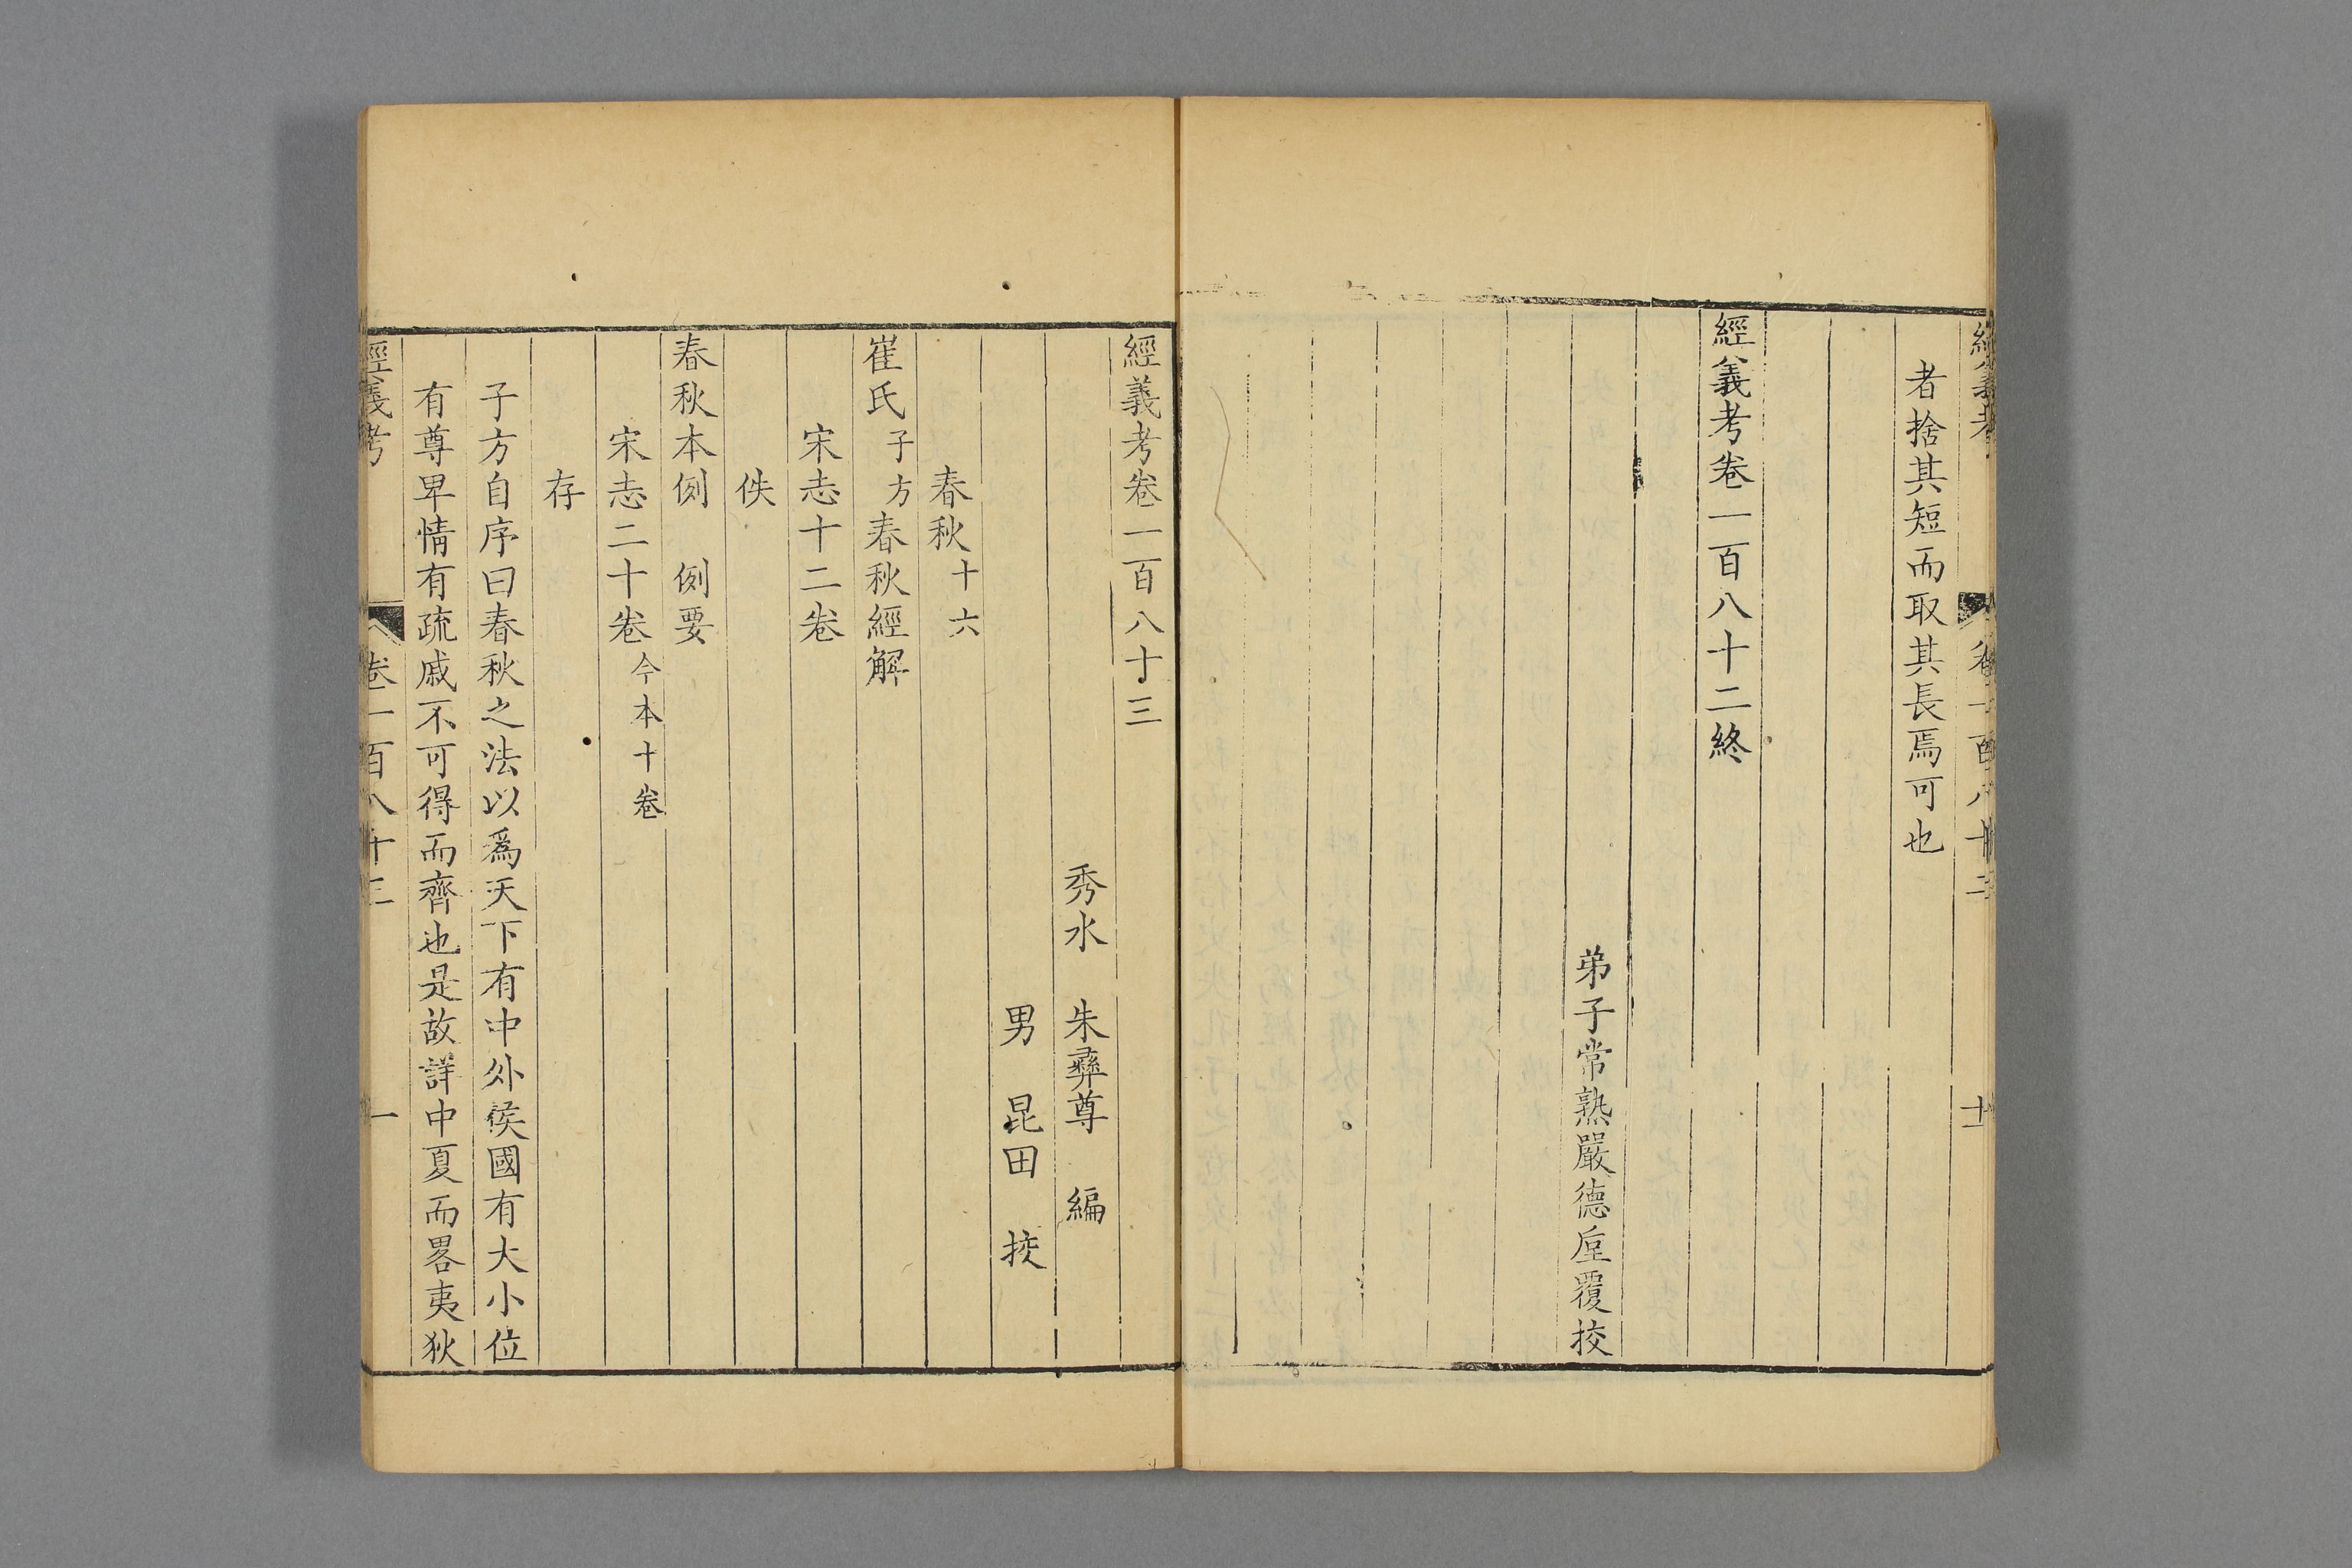 經義考 卷一百八十二 十
者捨其短而取其長焉可也
經義考卷一百八十二終
弟子常熟嚴德㞶覆挍
經義考卷一百八十三
秀水 朱彝尊 編
男 昆田 挍
春秋十六
崔氏子方春秋經解
宋志十二卷
佚
春秋本例 例要
宋志二十卷今本十卷
存
子方自序曰春秋之法以爲天下有中外侯國有大小位
有尊卑情有疏戚不可得而齊也是故詳中夏而畧夷狄
經義考 卷一百八十三 一